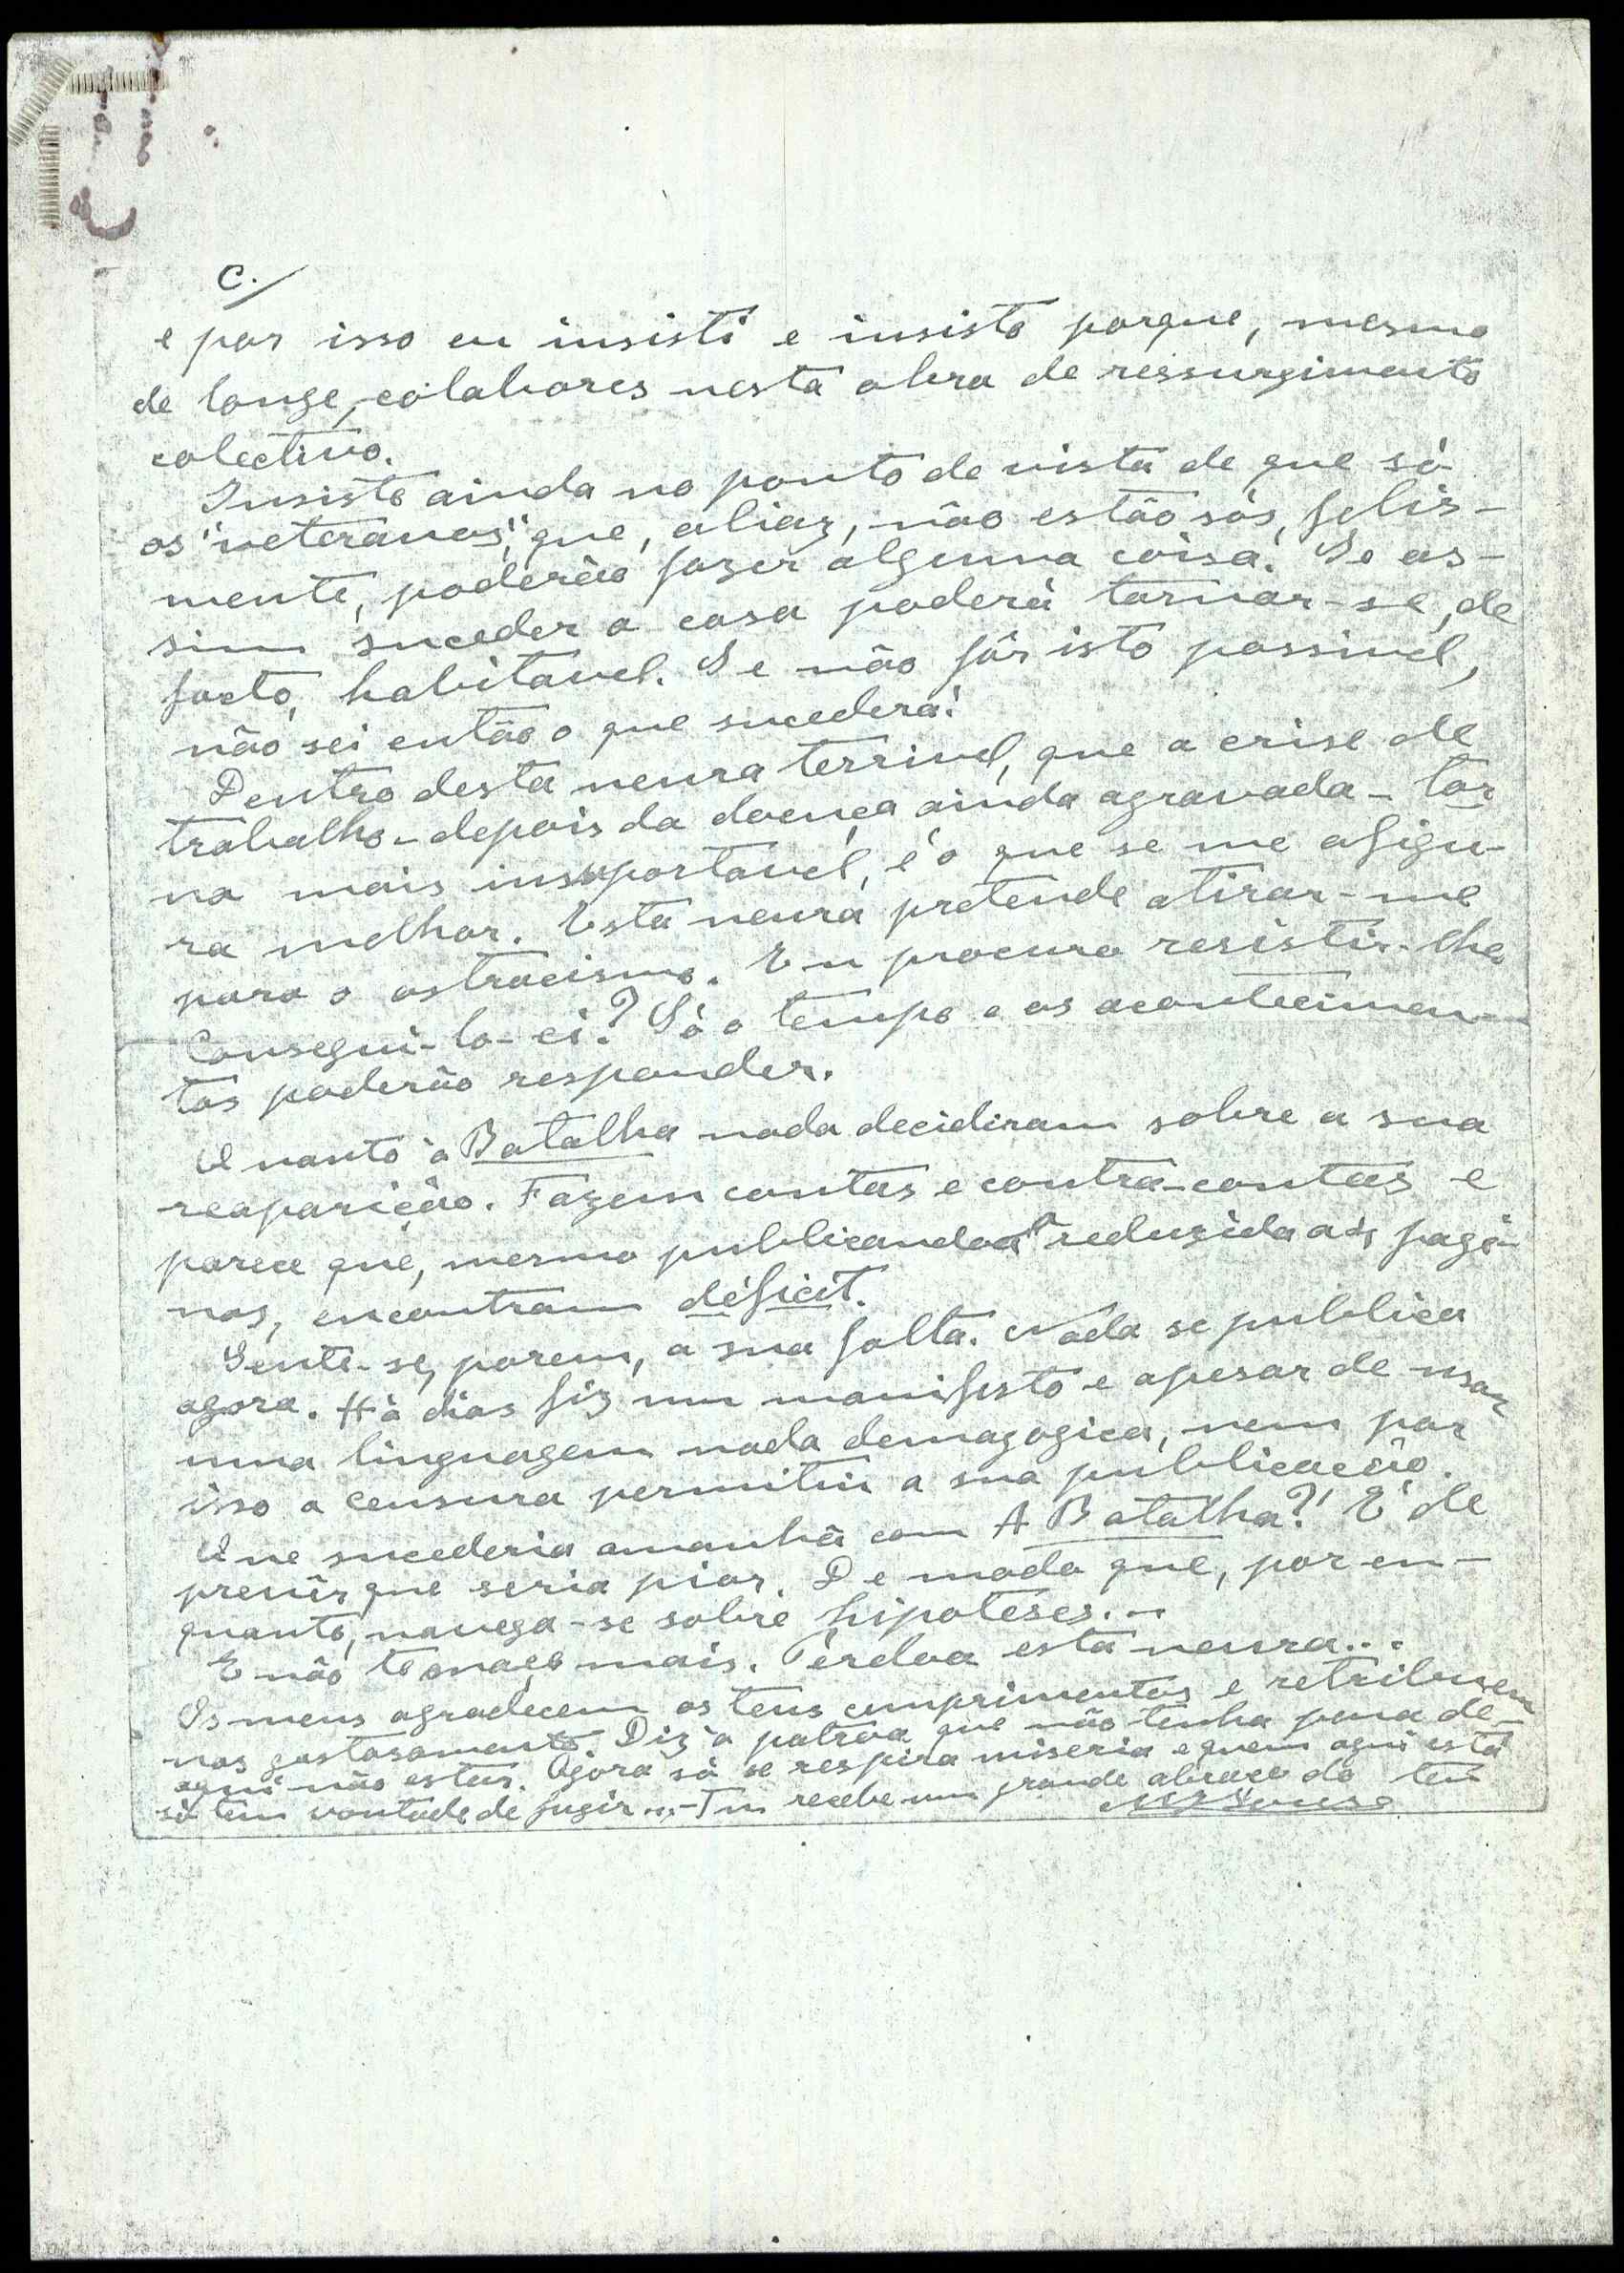 C./
e por isso eu insisti e insisto porque, mesmo
de longe, colabores nesta obra de ressurgimento
colectivo.
Insisto ainda no ponto de vista de que só
os "veteranos", que, aliaz, não estão sós, feliz-
mente, poderão fazer alguma coisa. Se as-
sim suceder a casa poderá tornar-se, de
facto, habitavel. Se não fôr isto possivel,
não sei então o que sucederá!
Dentro desta neura terrivel, que a crise de
trabalho - depois da doença ainda agravada - tor
na mais insuportavel, é o que se me afigu-
ra melhor. Esta neura pretende atirar-me
para o ostracismo. Eu procuro resistir-lhe
Consegui-lo-ei? Só o tempo e os acontecimen-
tos poderão responder.
Quanto à Batalha nada decidiram sobre a sua
reaparição. Fazem contas e contra-contas e
parece que, mesmo publicando-a reduzida a 4 pagi-
nas, encontram déficit.
Sente-se, porem, a sua falta. Nada se publica
agora. Há dias fiz um manifesto e apesar de usar
uma linguagem nada demagogica, nem por
isso a censura permitiu a sua publicação.
Que sucederia amanhã com A Batalha?! É de
prevêr que seria pior. De modo que, por en-
quanto, navega-se sobre hipoteses...
E não te maço mais. Perdoa esta neura...
Os meus agradecem os teus cumprimentos e retribuem
nos gostosamente. Diz à patroa que não tenha pena de
aqui não estar. Agora só se respira miseria e quem aqui está
só tem vontade de fugir... - Tu recebe um grande abraço do teu
Sousa